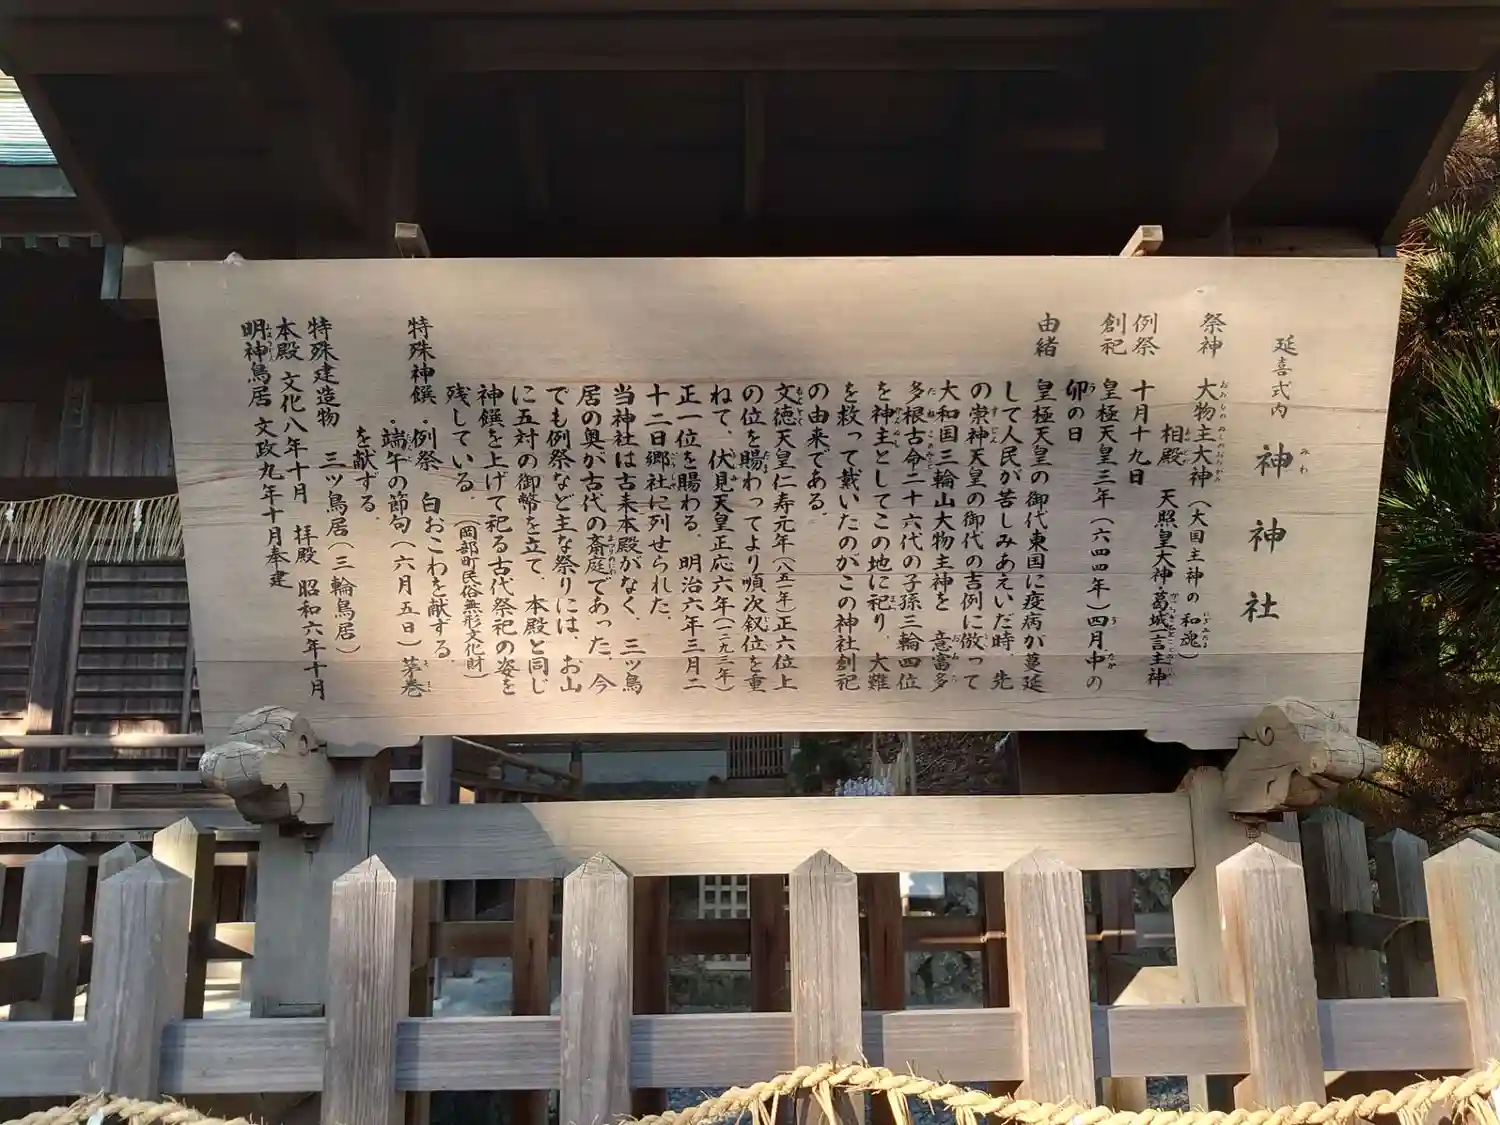 延喜式内 神神社
祭神 大物主大神(大国主神の和魂)
相殿 天照皇大神 葛城一言主神
例祭 十月十九日
創祀 皇極天皇三年(六四四年)四月中の
卯の日
由緒 皇極天皇の御代東国に疫病が蔓延
して人民が苦しみあえいだ時、先
の崇神天皇の御代の吉例に倣って
大和国三輪山大物主神を 意富多
多根古命二十六代の子孫三輪四位
を神主としてこの地に祀り、大難
を救って戴いたのがこの神社創祀
の由来である。
文徳天皇仁寿元年(八五一年)正六位上
の位を賜わってより順次叙位を重
ねて、伏見天皇正応六年(一二九三年)
正一位を賜わる。明治六年三月二
十二日郷社に列せられた。
当神社は古来本殿がなく、三ツ鳥
居の奥が古代の斎庭であった。今
でも例祭など主な祭りには、お山
に五対の御幣を立て、本殿と同じ
神饌を上げて祀る古代祭祀の姿を
残している。(岡部町民俗無形文化財)
特殊神饌 ・例祭 白おこわを献ずる。
・端午の節句(六月五日)茅巻
を献ずる。
特殊建造物 三ツ鳥居(三輪鳥居)
本殿 文化八年十月 拝殿 昭和六年十月
明神鳥居 文政九年十月奉建